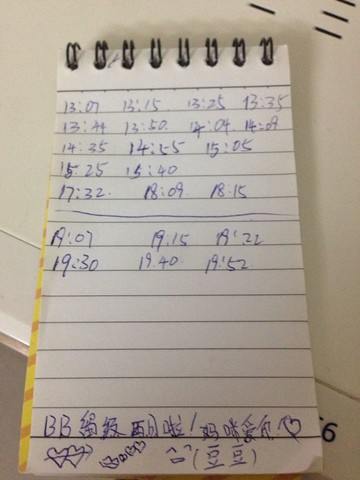 13:07 13:15 13:25 13:35
13:44 13:50 14:04 14:09
14:35 14:55 15:05
15:25 15:40
17:32 18:09 18:15
19:07 19.15 19:22
19:30 19.40 19:52
BB 啦！妈咪爱
(豆豆)
6